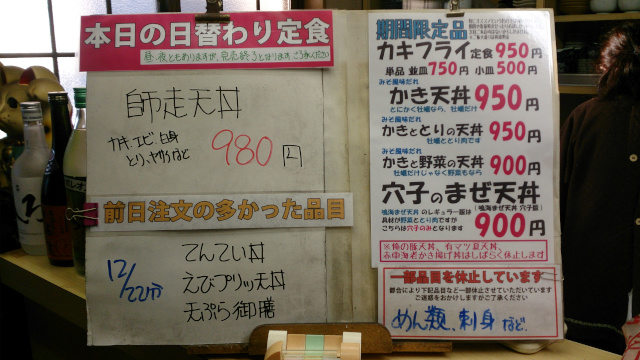 本日の日替わり定食
昼・夜ともありますが、完売終了となります ごろうんください
師走天丼
カキ、エビ 白身
とり、ヤサイなど
980円
前日注文の多かった品目
12/22分
てんてい丼
えびプリッ天丼
天ぷら御膳
期間限定品
カキフライ定食950円
単品 並皿750円 小皿500円
みそ風味だれ
かき天丼950円
とにかく牡蠣なら、牡蠣だけ
みそ風味だれ
かきととりの天丼950円
牡蠣ととり肉です
みそ風味だれ
かきと野菜の天丼900円
牡蠣だけじゃなく野菜もなら
穴子のまぜ天丼
鳴海まぜ天丼 のレギュラー版は
具材が野菜ととり肉ですが
こちらは穴子のみとなります
(鳴海まぜ天丼 穴子版)
900円
※俺の豚天丼、有マツ夏天丼、
赤車海老かき揚げ丼はしばらく休止します
一部品目を休止しています
都合により下記品目など一部休止させていただいています
ご迷惑をおかけしますがご了承ください
めん類、刺身 など